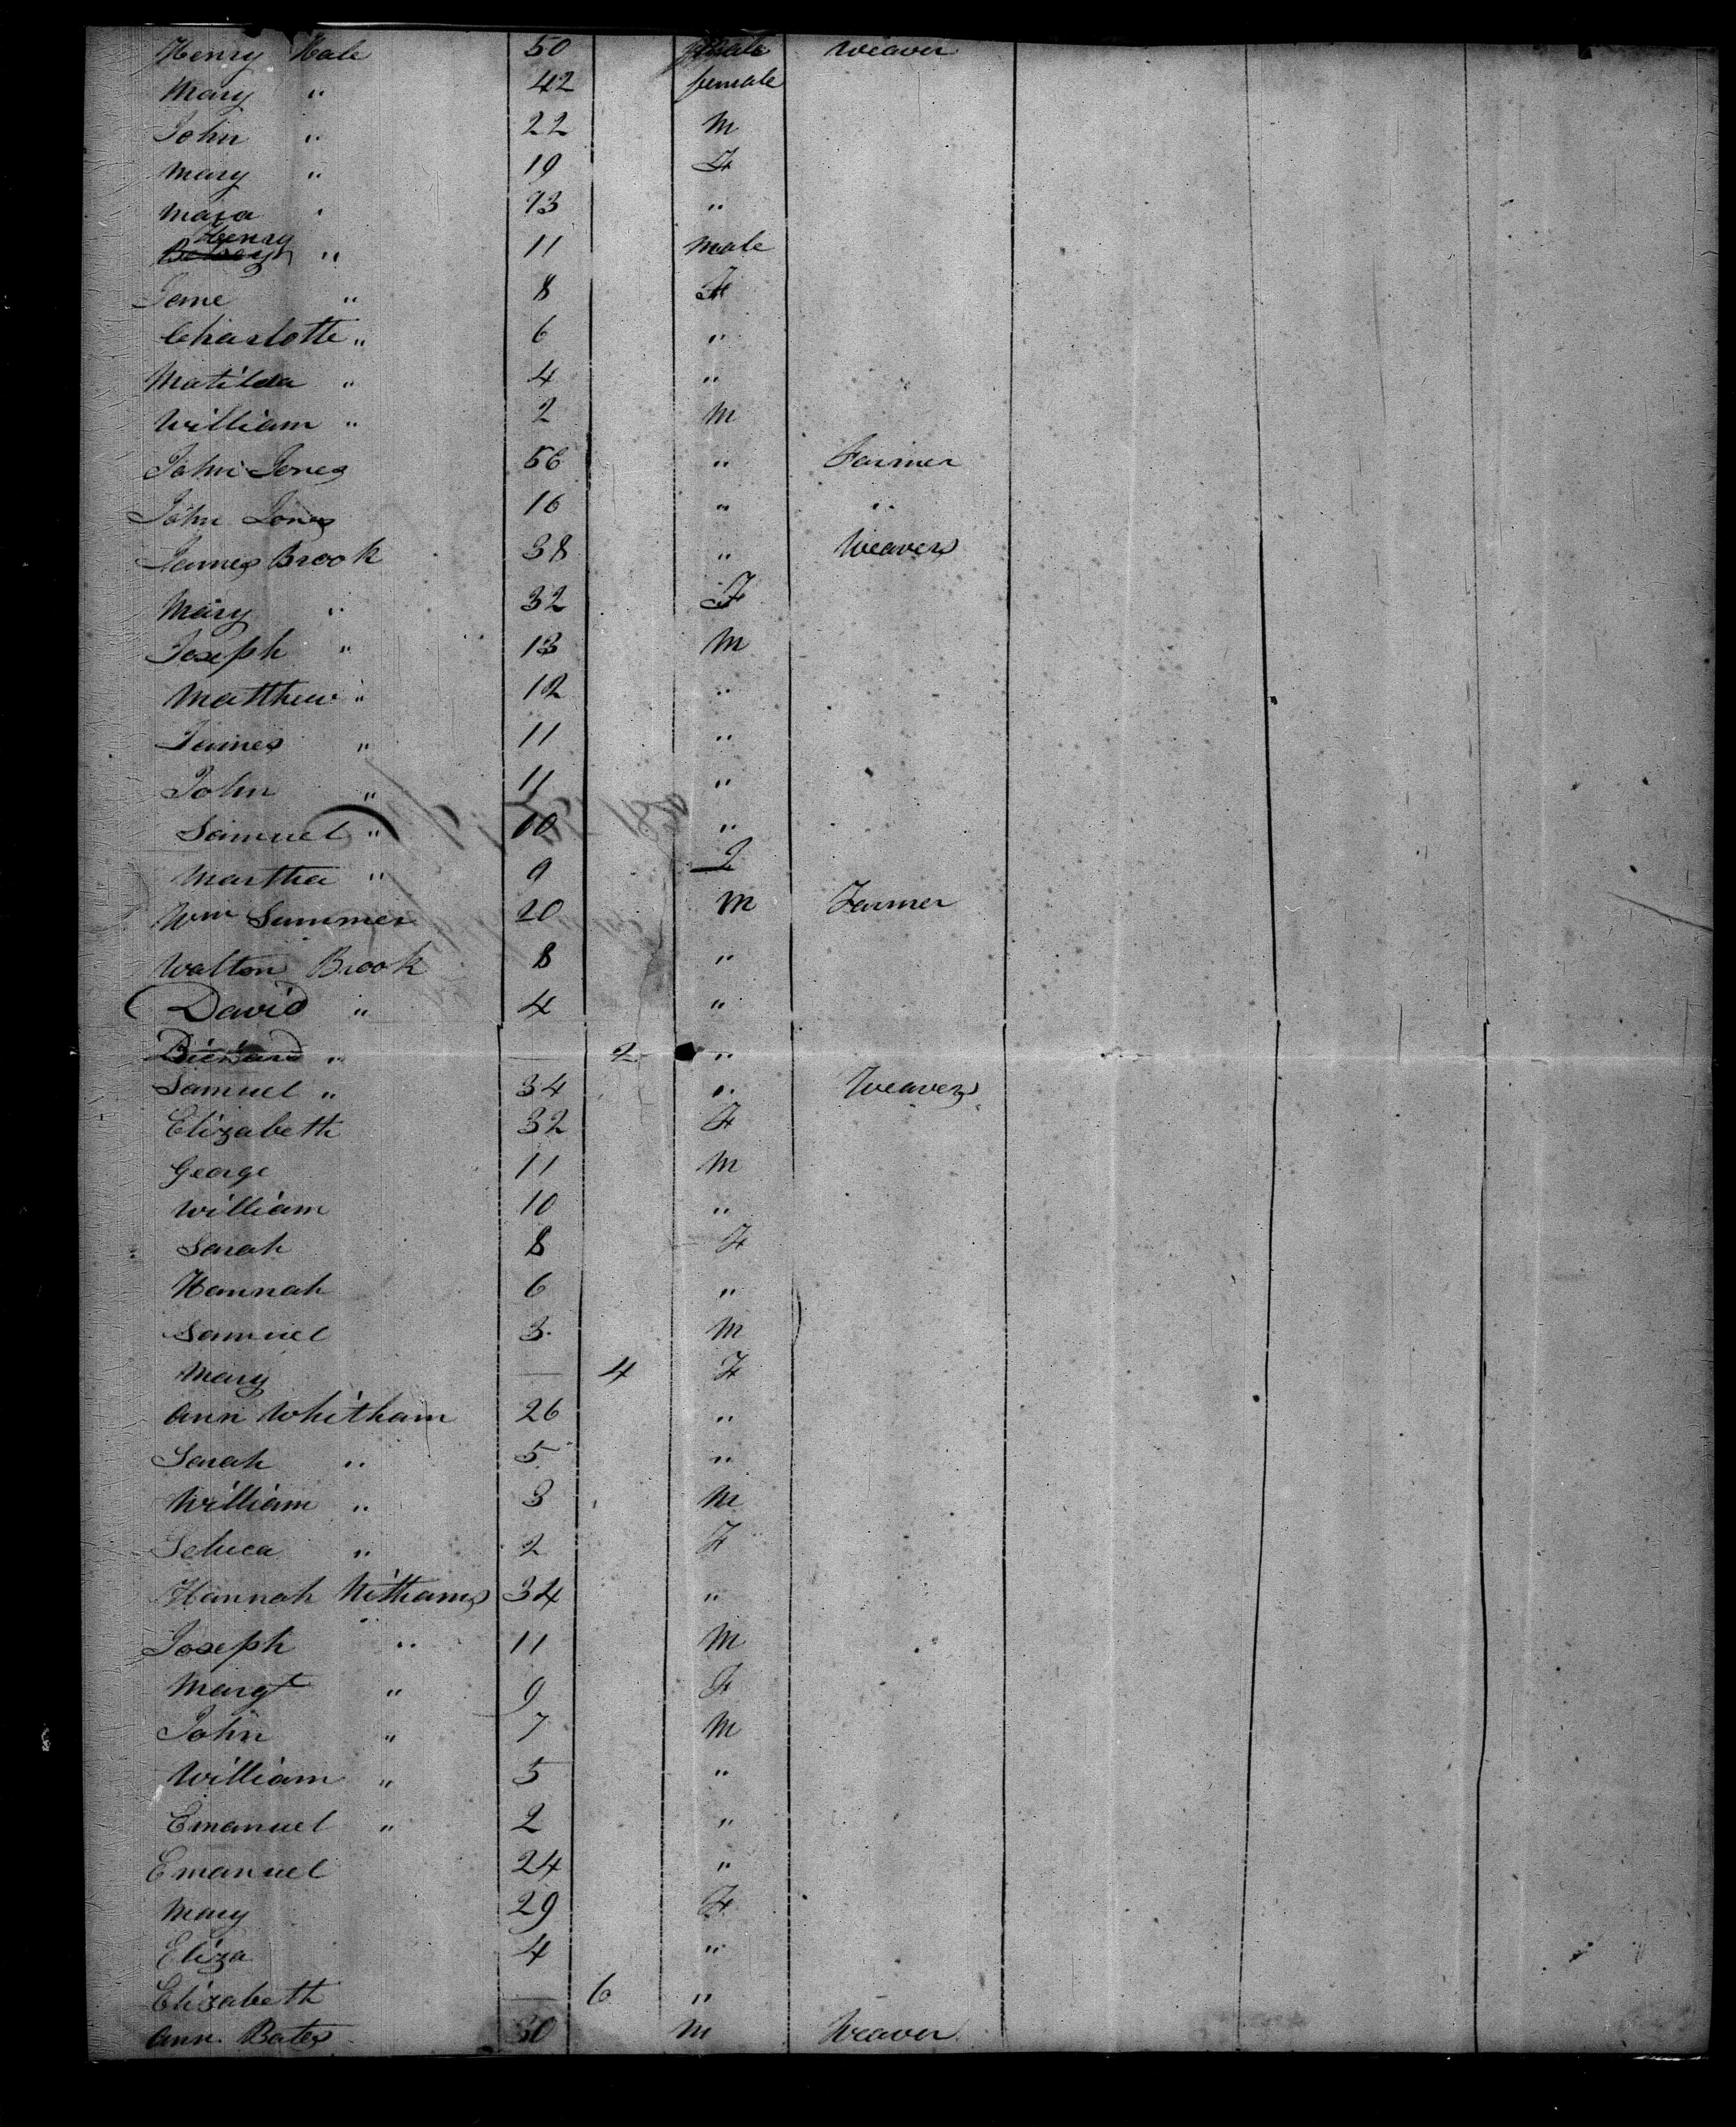 Henry Hale 50 male Weaver
Mary " 42 female
John " 22 M
Mary " 19 F
Mara " 13 "
Henry
" 11 male
Jane " 8 F
Charlotte " 6 "
Matilda " 4 "
William " 2 M
John Jones 56 " Farmer
John Jones 16 " "
James Brook 38 " Weaver
Mary " 32 F
Joseph " 13 M
Matthew " 12 "
James " 11 "
John " 11 "
Samuel " 10 "
Martha " 9 F
Wm Summer 20 M Farmer
Walton Brook 8 "
David " 4 "
Richard " — 2 "
Samuel " 34 " Weaver
Elizabeth 32 F
George 11 M
William 10 "
Sarah 8 F
Hannah 6 "
Samuel 3 M
Mary — 4 F
Ann Whitham 26 "
Sarah " 5 "
William " 3 M
" 2 F
Hannah Withams 34 "
Joseph " 11 M
Margt " 9 F
John " 7 M
William " 5 "
Emanuel " 2 "
Emanuel 24 "
Mary 29 F
Eliza 4 "
Elizabeth — 6 "
Ann Bates 30 M Weaver